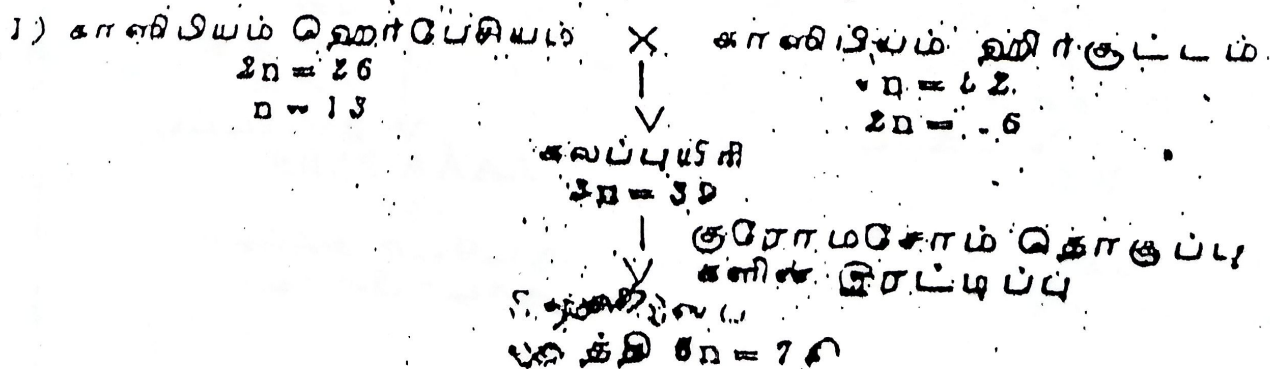 1) காஸிபியம் ஹெர்பேசியம் X காஸிபியம் ஹிர்சூட்டம்
2n = 26
n = 13
கலப்புயிரி
3n = 39
குரோமசோம் தொகுப்பு
களின் இரட்டிப்பு
6n = 7